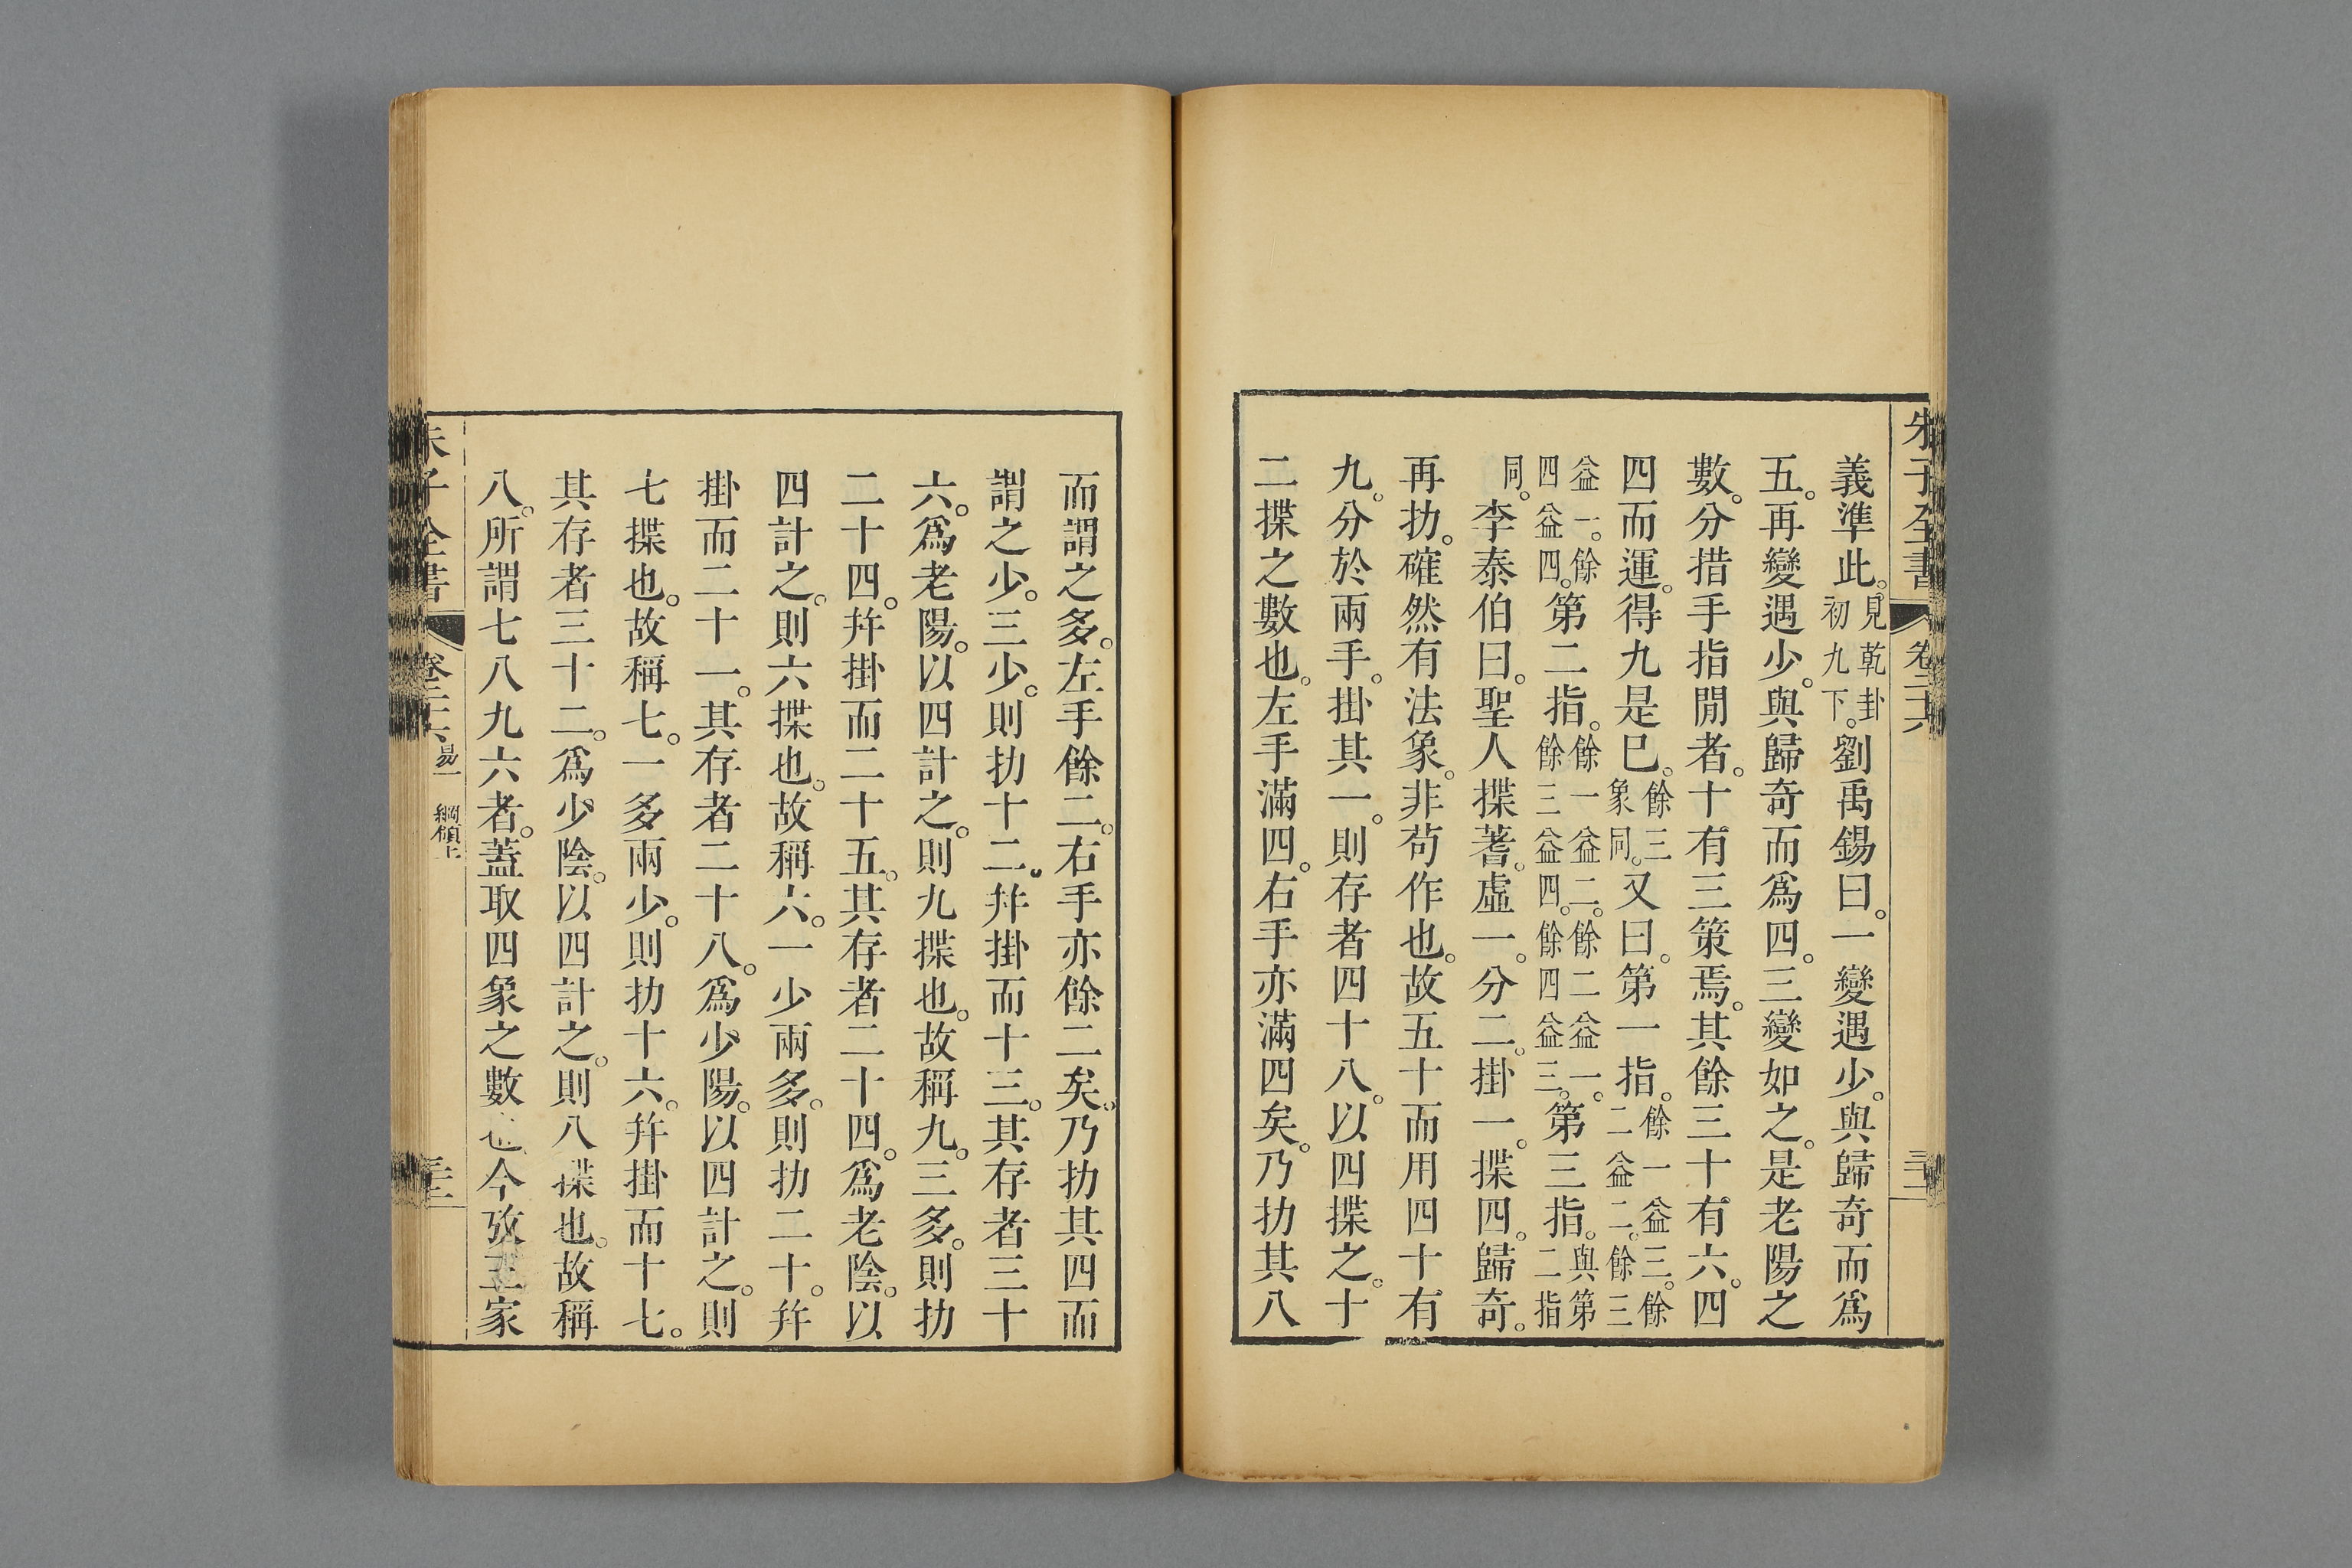 朱子全書 卷二十六
義準此。見乾卦初九下。劉禹錫曰。一變遇少。與歸奇而爲
五。再變遇少。與歸奇而爲四。三變如之。是老陽之
數。分措手指閒者。十有三策焉。其餘三十有六。四
四而運。得九是已。餘三象同。又曰。第一指。餘一益三。餘二益二。餘三
益一。餘四益四。第二指。餘一益二。餘二益一。餘三益四。餘四益三。第三指。與第二指
同。李泰伯曰。聖人揲蓍。虛一。分二。掛一。揲四。歸奇。
再扐。確然有法象。非苟作也。故五十而用四十有
九。分於兩手。掛其一。則存者四十八。以四揲之。十
二揲之數也。左手滿四。右手亦滿四矣。乃扐其八
而謂之多。左手餘二。右手亦餘二矣。乃扐其四而
謂之少。三少。則扐十二。幷掛而十三。其存者三十
六。爲老陽。以四計之。則九揲也。故稱九。三多。則扐
二十四。幷掛而二十五。其存者二十四。爲老陰。以
四計之。則六揲也。故稱六。一少兩多。則扐二十。幷
掛而二十一。其存者二十八。爲少陽。以四計之。則
七揲也。故稱七。一多兩少。則扐十六。幷掛而十七。
其存者三十二。爲少陰。以四計之。則八揲也。故稱
八。所謂七八九六者。蓋取四象之數也。今攷三家
朱子全書 卷二十六 易一 綱領上